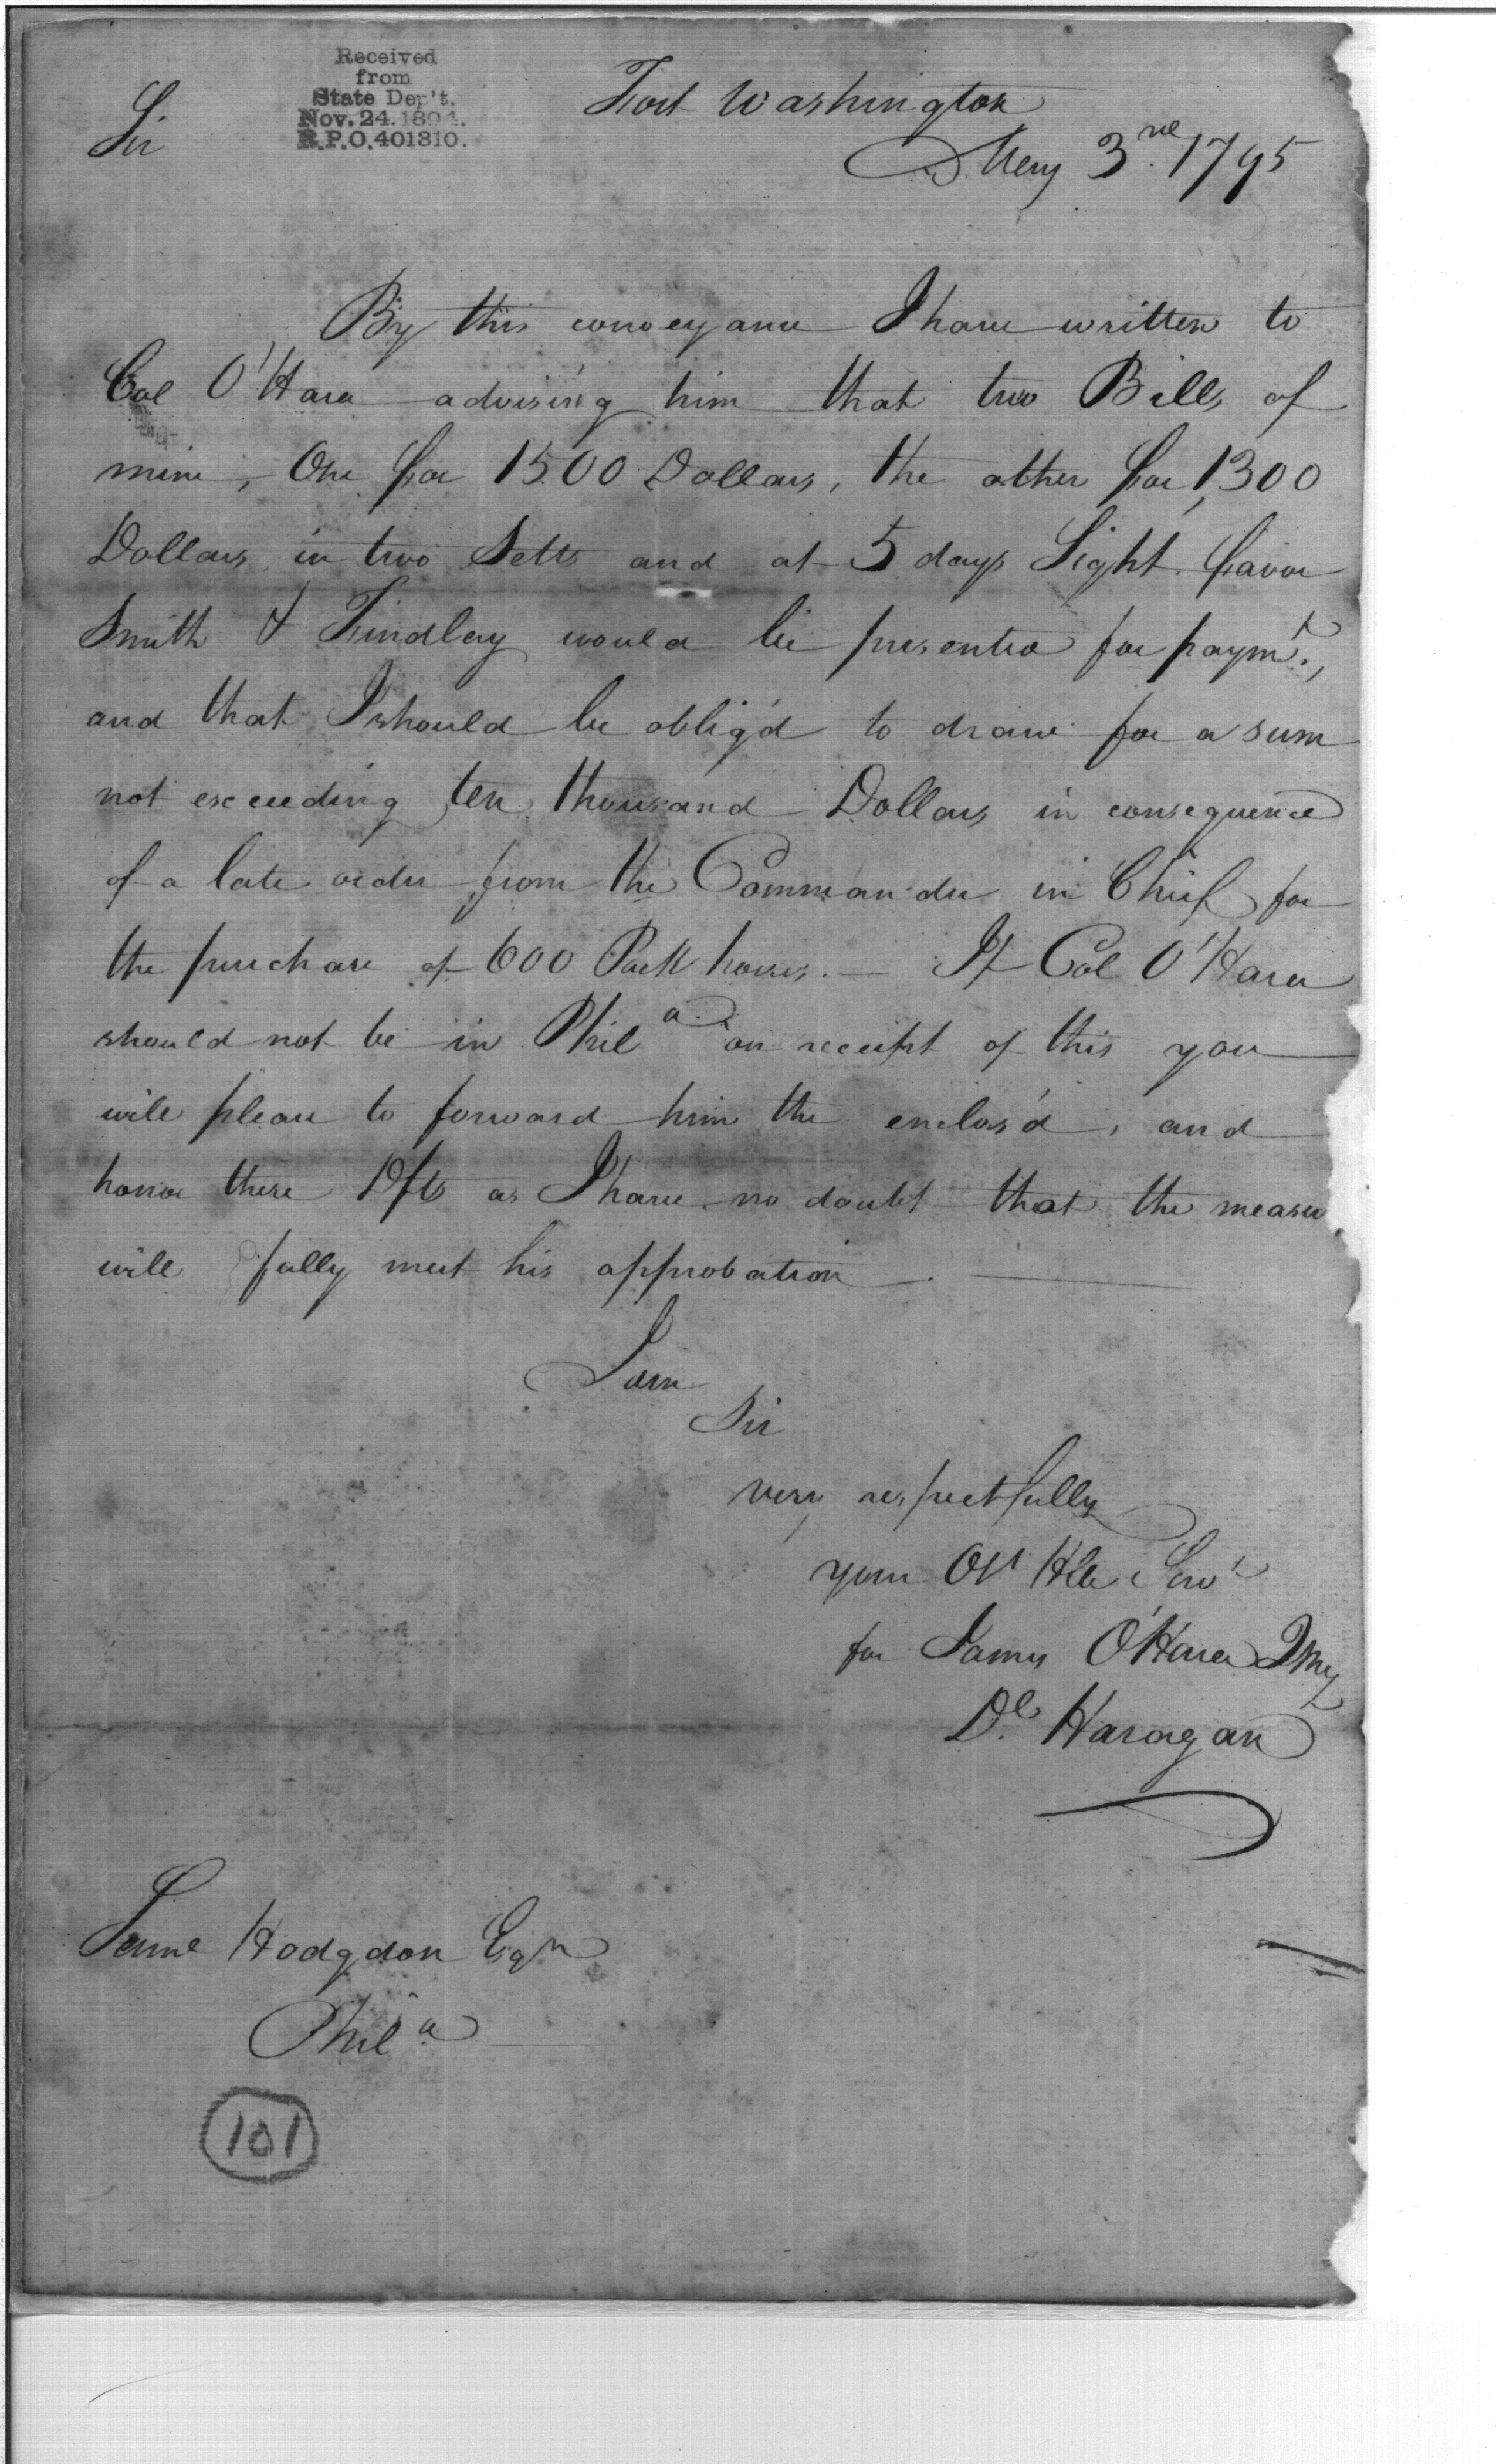 Received
from
State Dep't.
Nov. 24. 1894.
R.P.O. 401310.
Fort Washington
Sir
May 3rd. 1795
By this conveyance I have written to
Col O'Hara advising him that two Bills of
mine, One for 1500 Dollars, the other for 1300
Dollars in two Setts and at 5 days Sight favor
Smith & Findlay would be presented for paymt.,
and that I should be oblig'd to draw for a sum
not exceeding ten thousand Dollars in consequence
of a late order from the Commander in Chief for
the purchase of 600 Pack horses. — If Col O'Hara
should not be in Phila. on receipt of this you
will please to forward him the enclos'd, and
honor these Dfts as I have no doubt that the measu
will fully meet his approbation.
I am
Sir
very respectfully
your Obt Hble Servt
for James O'Hara QMG
Dl. Haragan
Saml Hodgdon Esqr
Phila
101